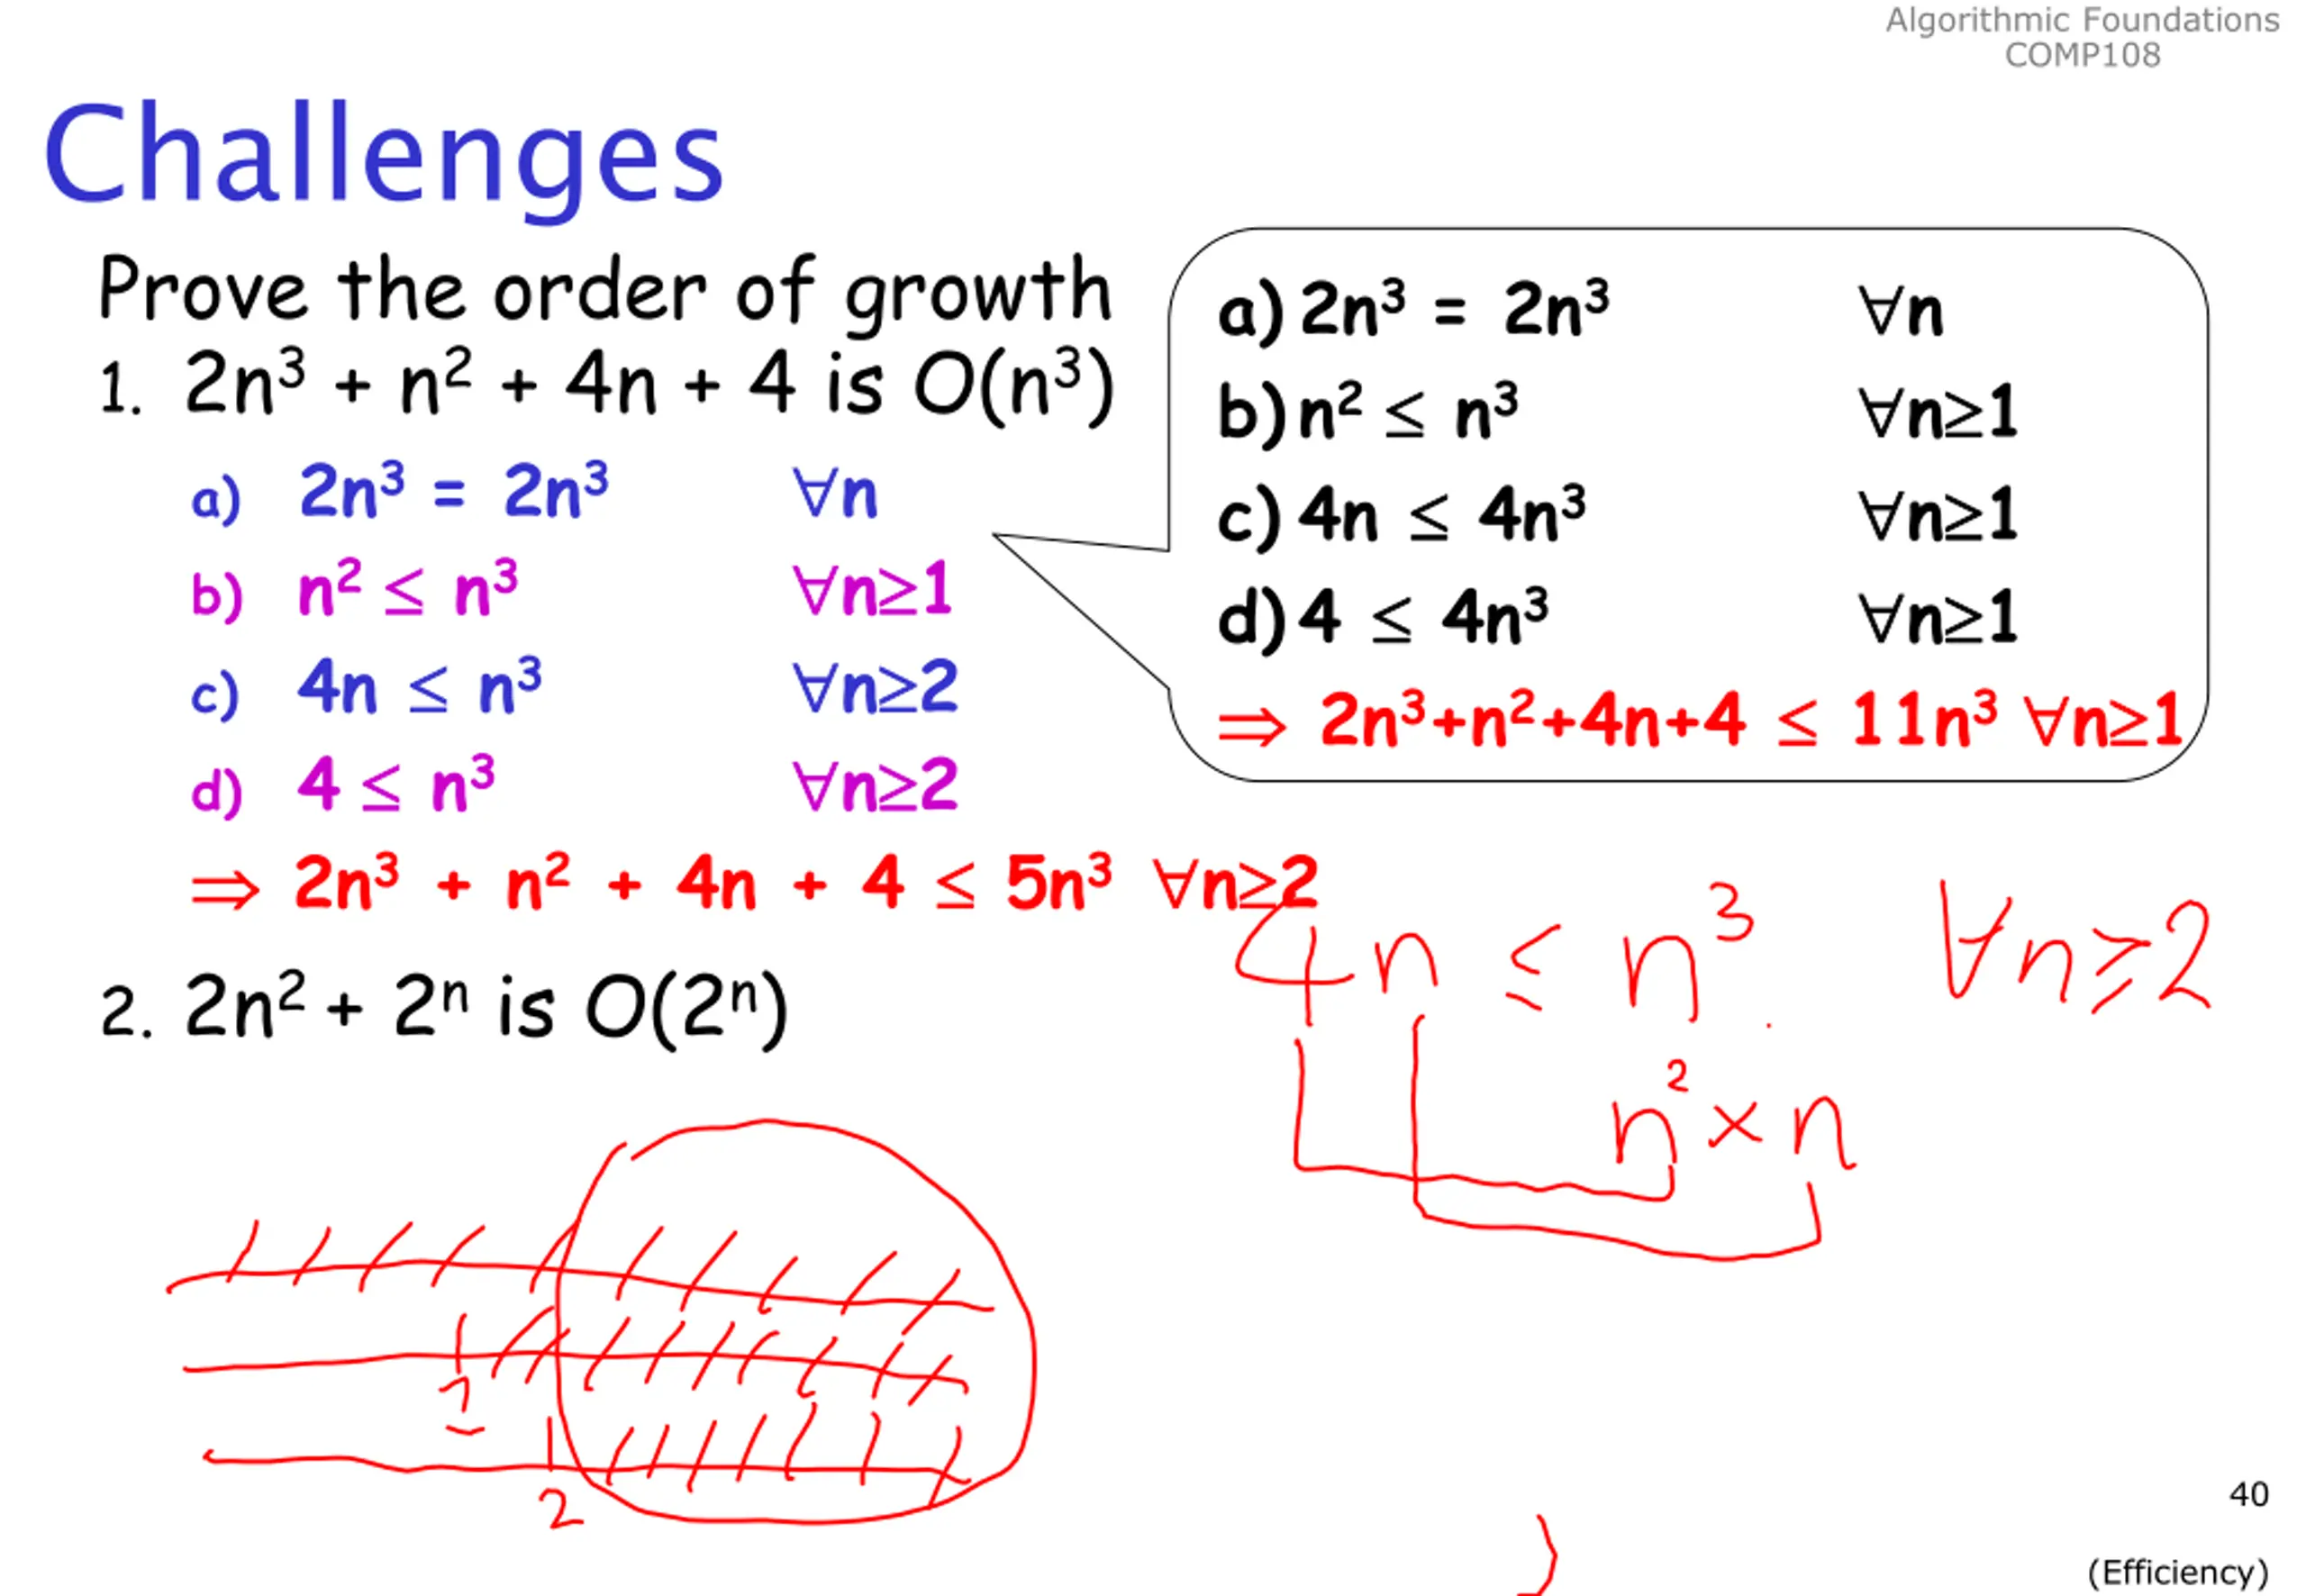 Algorithmic Foundations
COMP108
Challenges
Prove the order of growth
1. 2n³ + n² + 4n + 4 is O(n³)
a) 2n³ = 2n³ ∀n
b) n² ≤ n³ ∀n≥1
c) 4n ≤ n³ ∀n≥2
d) 4 ≤ n³ ∀n≥2
⇒ 2n³ + n² + 4n + 4 ≤ 5n³ ∀n≥2
a) 2n³ = 2n³ ∀n
b) n² ≤ n³ ∀n≥1
c) 4n ≤ 4n³ ∀n≥1
d) 4 ≤ 4n³ ∀n≥1
⇒ 2n³+n²+4n+4 ≤ 11n³ ∀n≥1
2. 2n² + 2ⁿ is O(2ⁿ)
4n ≤ n³ ∀n≥2
n² × n
1
2
40
(Efficiency)